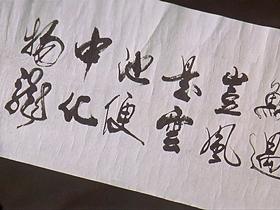 豈是池中物
遇風雲便化龍